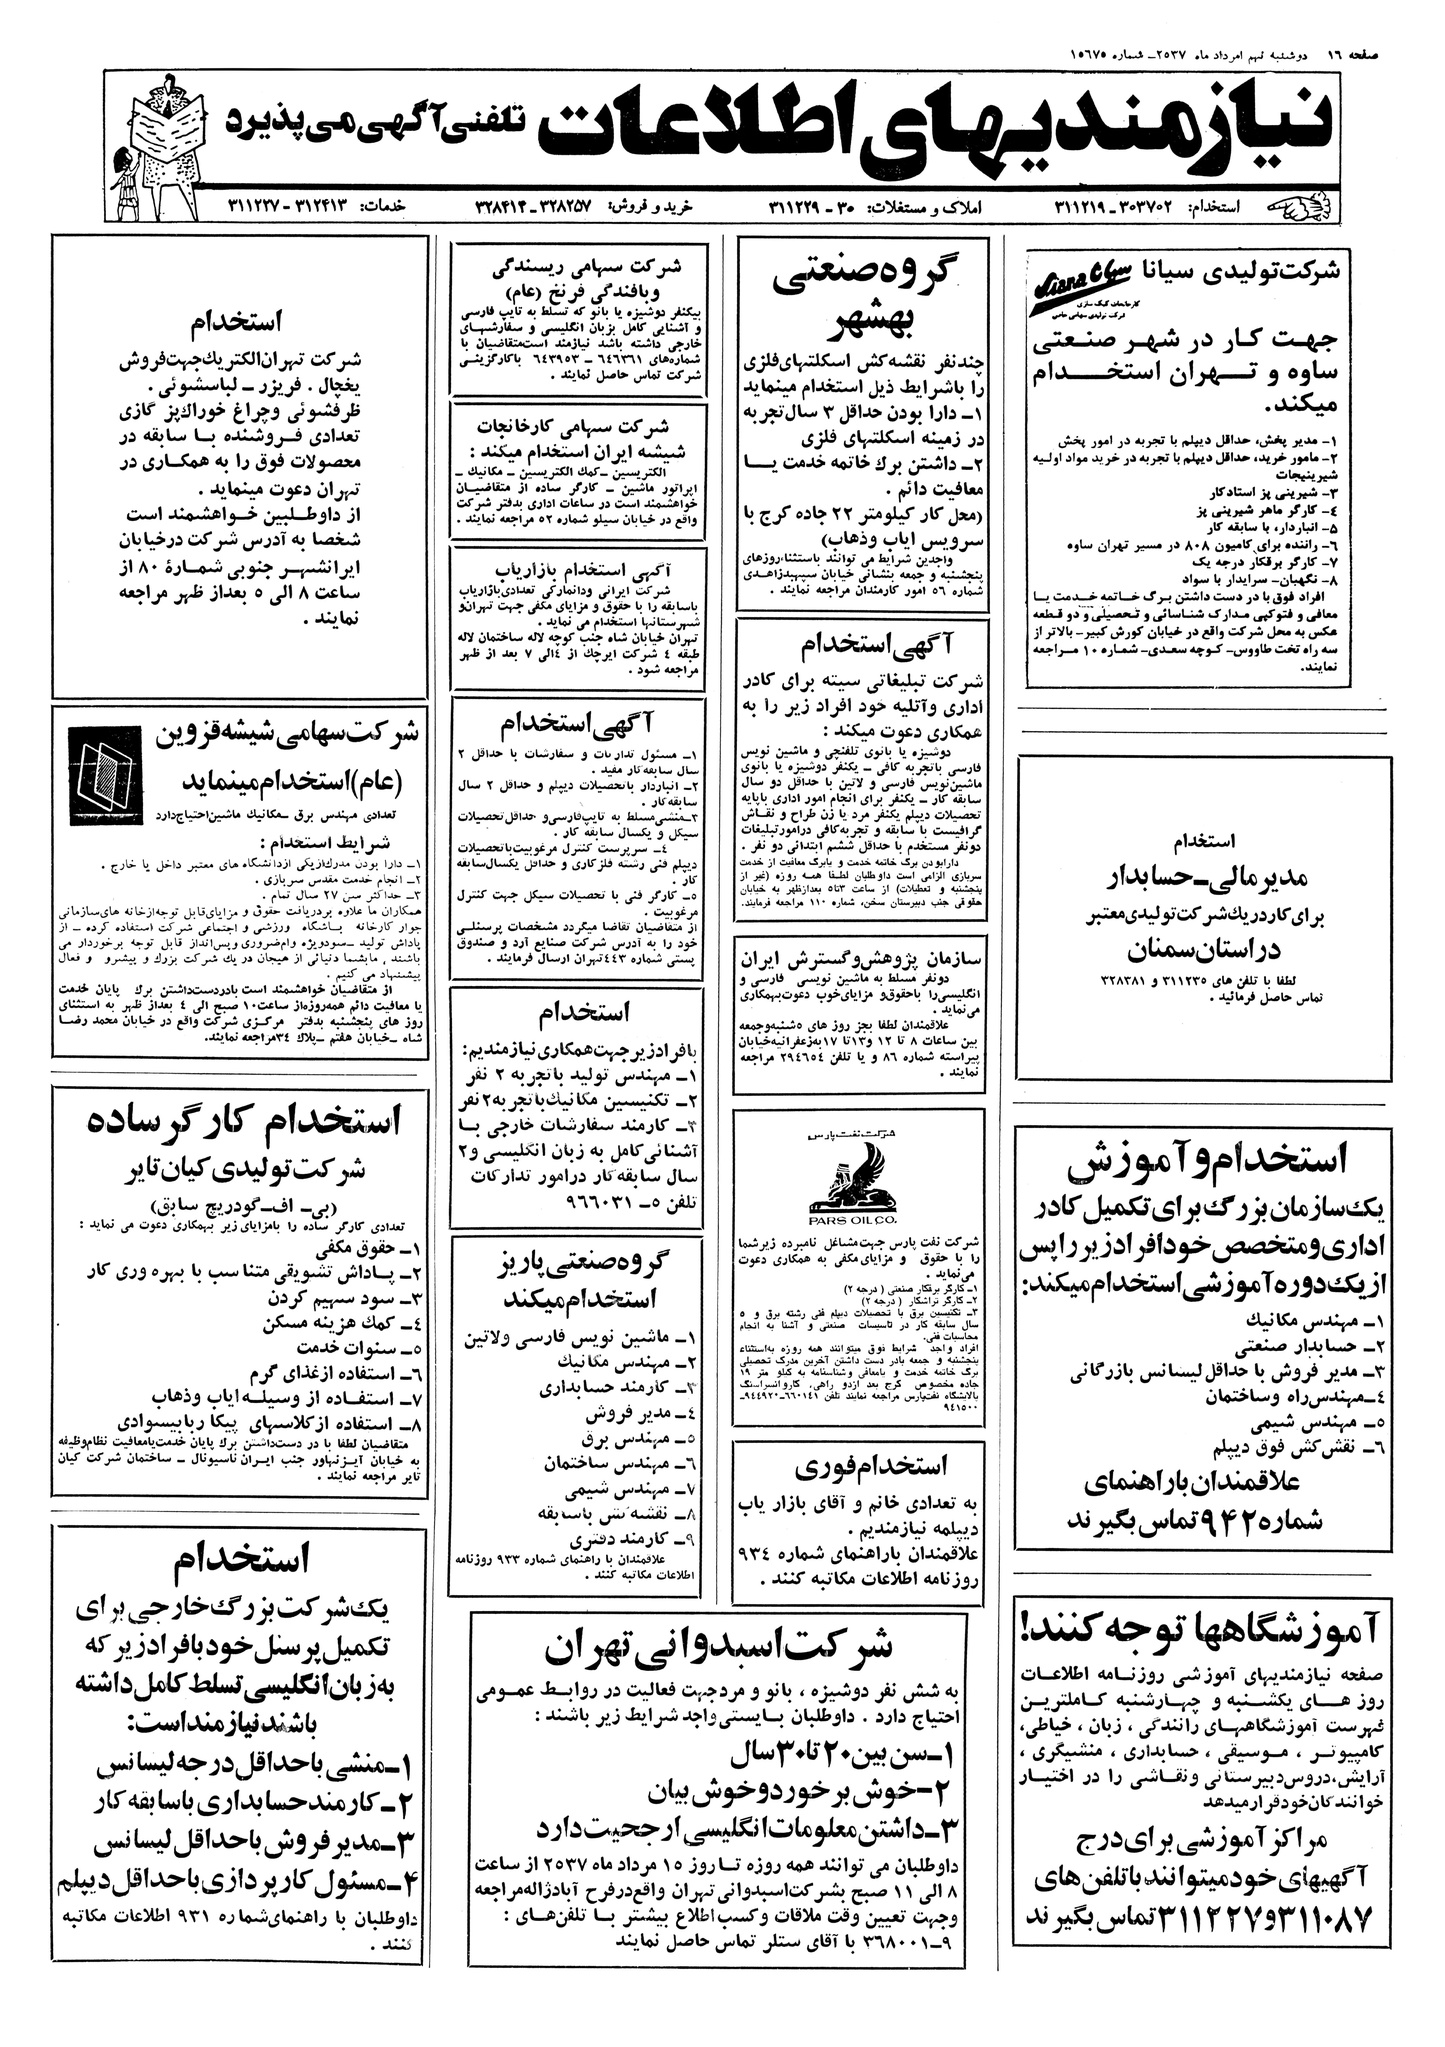 صفحه ۱۶ دوشنبه نهم امرداد ماه ۲۵۳۷ـ شماره ۱۵۶۷۵
نیازمندیهای اطلاعات تلفنی آگهی می‌پذیرد
استخدام: ۳۰۳۷۰۲ـ ۳۱۱۲۱۹
املاک و مستغلات: ۳۰ـ ۳۱۱۲۲۹
خرید و فروش: ۳۲۸۲۵۷ـ ۳۲۸۴۱۴
خدمات: ۳۱۲۴۱۳ـ ۳۱۱۲۳۷
شرکت تولیدی سیانا
سیانا Siana
کارخانجات کیک سازی
شرکت تولیدی سهامی خاص
جهت کار در شهر صنعتی
ساوه و تهران استخدام
میکند.
۱ـ مدیر پخش، حداقل دیپلم با تجربه در امور پخش
۲ـ مامور خرید، حداقل دیپلم با تجربه در خرید مواد اولیه
شیرینیجات
۳ـ شیرینی پز استادکار
۴ـ کارگر ماهر شیرینی پز
۵ـ انباردار، با سابقه کار
۶ـ راننده برای کامیون ۸۰۸ در مسیر تهران ساوه
۷ـ کارگر برقکار درجه یک
۸ـ نگهبان- سرایدار با سواد
افراد فوق با در دست داشتن برگ خاتمه خدمت یا
معافی و فتوکپی مدارک شناسائی و تحصیلی و دو قطعه
عکس به محل شرکت واقع در خیابان کورش کبیر- بالاتر از
سه راه تخت طاووس- کوچه سعدی- شماره ۱۰ مراجعه
نمایند.
استخدام
مدیر مالی ـ حسابدار
برای کار در یک شرکت تولیدی معتبر
در استان سمنان
لطفا با تلفن های ۳۱۱۲۳۵ و ۳۲۸۳۸۱
تماس حاصل فرمائید .
استخدام و آموزش
یک سازمان بزرگ برای تکمیل کادر
اداری و متخصص خود افراد زیر را پس
از یک دوره آموزشی استخدام میکند:
۱ـ مهندس مکانیک
۲ـ حسابدار صنعتی
۳ـ مدیر فروش با حداقل لیسانس بازرگانی
۴ـ مهندس راه و ساختمان
۵ـ مهندس شیمی
۶ـ نقش کش فوق دیپلم
علاقمندان با راهنمای
شماره ۹۴۲ تماس بگیرند
آموزشگاهها توجه کنند!
صفحه نیازمندیهای آموزشی روزنامه اطلاعات
روز های یکشنبه و چهارشنبه کاملترین
فهرست آموزشگاههای رانندگی ، زبان ، خیاطی،
کامپیوتر ، موسیقی ، حسابداری ، منشیگری ،
آرایش، دروس دبیرستانی و نقاشی را در اختیار
خوانندگان خود قرار میدهد
مراکز آموزشی برای درج
آگهیهای خود میتوانند با تلفن های
۳۱۱۰۸۷ و ۳۱۱۲۲۷ تماس بگیرند
گروه صنعتی
بهشهر
چند نفر نقشه کش اسکلتهای فلزی
را با شرایط ذیل استخدام مینماید
۱ـ دارا بودن حداقل ۳ سال تجربه
در زمینه اسکلتهای فلزی
۲ـ داشتن برگ خاتمه خدمت یا
معافیت دائم .
(محل کار کیلومتر ۲۲ جاده کرج با
سرویس ایاب و ذهاب)
واجدین شرایط می توانند باستثناء روزهای
پنجشنبه و جمعه بنشانی خیابان سپهبد زاهدی
شماره ۵۶ امور کارمندان مراجعه نمایند .
آگهی استخدام
شرکت تبلیغاتی سیته برای کادر
اداری و آتلیه خود افراد زیر را به
همکاری دعوت میکند :
دوشیزه یا بانوی تلفنچی و ماشین نویس
فارسی با تجربه کافی ـ یکنفر دوشیزه یا بانوی
ماشین نویس فارسی و لاتین با حداقل دو سال
سابقه کار ـ یکنفر برای انجام امور اداری با پایه
تحصیلات دیپلم یکنفر مرد یا زن طراح و نقاش
گرافیست با سابقه و تجربه کافی در امور تبلیغات
دو نفر مستخدم با حداقل ششم ابتدائی دو نفر .
دارا بودن برگ خاتمه خدمت و یا برگ معافیت از خدمت
سربازی الزامی است داوطلبان لطفا همه روزه (غیر از
پنجشنبه و تعطیلات) از ساعت ۳ تا ۵ بعد از ظهر به خیابان
حقوقی جنب دبیرستان سخن، شماره ۱۱۰ مراجعه فرمایند.
سازمان پژوهش و گسترش ایران
دو نفر مسلط به ماشین نویسی فارسی و
انگلیسی را با حقوق و مزایای خوب دعوت بهمکاری
می‌نماید .
علاقمندان لطفا بجز روز های ۵ شنبه و جمعه
بین ساعات ۸ تا ۱۲ و ۱۳ تا ۱۷ به زعفرانیه خیابان
پیراسته شماره ۸۶ و یا تلفن ۲۹۴۶۵۴ مراجعه
نمایند .
شرکت نفت پارس
PARS OIL CO.
شرکت نفت پارس جهت مشاغل نامبرده زیر شما
را با حقوق و مزایای مکفی به همکاری دعوت
می‌نماید .
۱ـ کارگر برقکار صنعتی ( درجه ۲)
۲ـ کارگر تراشکار ( درجه ۲)
۳ـ تکنیسین برق با تحصیلات دیپلم فنی رشته برق و ۵
سال سابقه کار در تاسیسات صنعتی و آشنا به انجام
محاسبات فنی.
افراد واجد شرایط فوق میتوانند همه روزه به‌استثناء
پنجشنبه و جمعه با در دست داشتن آخرین مدرک تحصیلی
برگ خاتمه خدمت و یا معافی و شناسنامه به کیلو متر ۱۹
جاده مخصوص کرج بعد از دو راهی، کاروانسراسنگ
پالایشگاه نفت پارس مراجعه نمایند تلفن ۶۶۰۱۴۱ـ ۹۴۴۹۲۰ـ
۹۴۱۵۰۰
استخدام فوری
به تعدادی خانم و آقای بازار یاب
دیپلمه نیازمندیم .
علاقمندان با راهنمای شماره ۹۳۴
روزنامه اطلاعات مکاتبه کنند .
شرکت سهامی ریسندگی
و بافندگی فرنخ (عام)
بیکنفر دوشیزه یا بانو که تسلط به تایپ فارسی
و آشنایی کامل بزبان انگلیسی و سفارشهای
خارجی داشته باشد نیازمند است متقاضیان با
شماره‌های ۶۴۶۳۶۱ ـ ۶۴۳۹۵۳ با کارگزینی
شرکت تماس حاصل نمایند .
شرکت سهامی کارخانجات
شیشه ایران استخدام میکند :
الکتریسین ـ کمک الکتریسین ـ مکانیک ـ
اپراتور ماشین ـ کارگر ساده از متقاضیان
خواهشمند است در ساعات اداری بدفتر شرکت
واقع در خیابان سیلو شماره ۵۲ مراجعه نمایند .
آگهی استخدام بازاریاب
شرکت ایرانی و دانمارکی تعدادی بازاریاب
با سابقه را با حقوق و مزایای مکفی جهت تهران و
شهرستانها استخدام می نماید .
تهران خیابان شاه جنب کوچه لاله ساختمان لاله
طبقه ۴ شرکت ایرچک از ۴ الی ۷ بعد از ظهر
مراجعه شود .
آگهی استخدام
۱ـ مسئول تدارکات و سفارشات با حداقل ۲
سال سابقه کار مفید .
۲ـ انباردار با تحصیلات دیپلم و حداقل ۲ سال
سابقه کار .
۳ـ منشی مسلط به تایپ فارسی و حداقل تحصیلات
سیکل و یکسال سابقه کار .
۴ـ سرپرست کنترل مرغوبیت با تحصیلات
دیپلم فنی رشته فلزکاری و حداقل یکسال سابقه
کار .
۵ـ کارگر فنی با تحصیلات سیکل جهت کنترل
مرغوبیت .
از متقاضیان تقاضا میگردد مشخصات پرسنلی
خود را به آدرس شرکت صنایع آرد و صندوق
پستی شماره ۴۴۳ تهران ارسال فرمایند .
استخدام
با فراد زیر جهت همکاری نیازمندیم:
۱ـ مهندس تولید با تجربه ۲ نفر
۲ـ تکنیسین مکانیک با تجربه ۲ نفر
۳ـ کارمند سفارشات خارجی با
آشنائی کامل به زبان انگلیسی و ۲
سال سابقه کار در امور تدارکات
تلفن ۵ـ ۹۶۶۰۳۱
گروه صنعتی پاریز
استخدام میکند
۱ـ ماشین نویس فارسی و لاتین
۲ـ مهندس مکانیک
۳ـ کارمند حسابداری
۴ـ مدیر فروش
۵ـ مهندس برق
۶ـ مهندس ساختمان
۷ـ مهندس شیمی
۸ـ نقشه کش با سابقه
۹ـ کارمند دفتری
علاقمندان با راهنمای شماره ۹۳۳ روزنامه
اطلاعات مکاتبه کنند .
شرکت اسبدوانی تهران
به شش نفر دوشیزه ، بانو و مرد جهت فعالیت در روابط عمومی
احتیاج دارد . داوطلبان بایستی واجد شرایط زیر باشند :
۱ـ سن بین ۲۰ تا ۳۰ سال
۲ـ خوش برخورد و خوش بیان
۳ـ داشتن معلومات انگلیسی ارجحیت دارد
داوطلبان می توانند همه روزه تا روز ۱۵ مرداد ماه ۲۵۳۷ از ساعت
۸ الی ۱۱ صبح بشرکت اسبدوانی تهران واقع در فرح آباد ژاله مراجعه
و جهت تعیین وقت ملاقات و کسب اطلاع بیشتر با تلفن های :
۹ـ ۳۶۸۰۰۱ با آقای ستلر تماس حاصل نمایند
استخدام
شرکت تهران الکتریک جهت فروش
یخچال . فریزر ـ لباسشوئی .
ظرفشوئی و چراغ خوراک پز گازی
تعدادی فروشنده با سابقه در
محصولات فوق را به همکاری در
تهران دعوت مینماید .
از داوطلبین خواهشمند است
شخصا به آدرس شرکت در خیابان
ایرانشهر جنوبی شمارهٔ ۸۰ از
ساعت ۸ الی ۵ بعد از ظهر مراجعه
نمایند .
شرکت سهامی شیشه قزوین
(عام) استخدام مینماید
تعدادی مهندس برق ـ مکانیک ماشین احتیاج دارد
شرایط استخدام :
۱ـ دارا بودن مدرک از یکی از دانشگاه های معتبر داخل یا خارج .
۲ـ انجام خدمت مقدس سربازی .
۳ـ حداکثر سن ۲۷ سال تمام .
همکاران ما علاوه بر دریافت حقوق و مزایای قابل توجه از خانه های سازمانی
جوار کارخانه باشگاه ورزشی و اجتماعی شرکت استفاده کرده ـ از
پاداش تولید ـ سود ویژه وام ضروری و پس انداز قابل توجه برخوردار می
باشند ، ما بشما دنیائی از هیجان در یک شرکت بزرگ و پیشرو و فعال
پیشنهاد می کنیم .
از متقاضیان خواهشمند است با در دست داشتن برگ پایان خدمت
یا معافیت دائم همه روزه از ساعت ۱۰ صبح الی ۴ بعد از ظهر به استثنای
روز های پنجشنبه بدفتر مرکزی شرکت واقع در خیابان محمد رضا
شاه ـ خیابان هفتم ـ پلاک ۳۴ مراجعه نمایند.
استخدام کارگر ساده
شرکت تولیدی کیان تایر
(بی- اف- گودریچ سابق)
تعدادی کارگر ساده را بامزایای زیر بهمکاری دعوت می نماید :
۱ـ حقوق مکفی
۲ـ پاداش تشویقی متناسب با بهره وری کار
۳ـ سود سهیم کردن
۴ـ کمک هزینه مسکن
۵ـ سنوات خدمت
۶ـ استفاده از غذای گرم
۷ـ استفاده از وسیله ایاب و ذهاب
۸ـ استفاده از کلاسهای پیکار با بیسوادی
متقاضیان لطفا با در دست داشتن برگ پایان خدمت یا معافیت نظام وظیفه
به خیابان آیزنهاور جنب ایران ناسیونال ـ ساختمان شرکت کیان
تایر مراجعه نمایند .
استخدام
یک شرکت بزرگ خارجی برای
تکمیل پرسنل خود با فراد زیر که
به زبان انگلیسی تسلط کامل داشته
باشند نیازمند است:
۱ـ منشی با حداقل درجه لیسانس
۲ـ کارمند حسابداری با سابقه کار
۳ـ مدیر فروش با حداقل لیسانس
۴ـ مسئول کارپردازی با حداقل دیپلم
داوطلبان با راهنمای شماره ۹۳۱ اطلاعات مکاتبه
کنند .